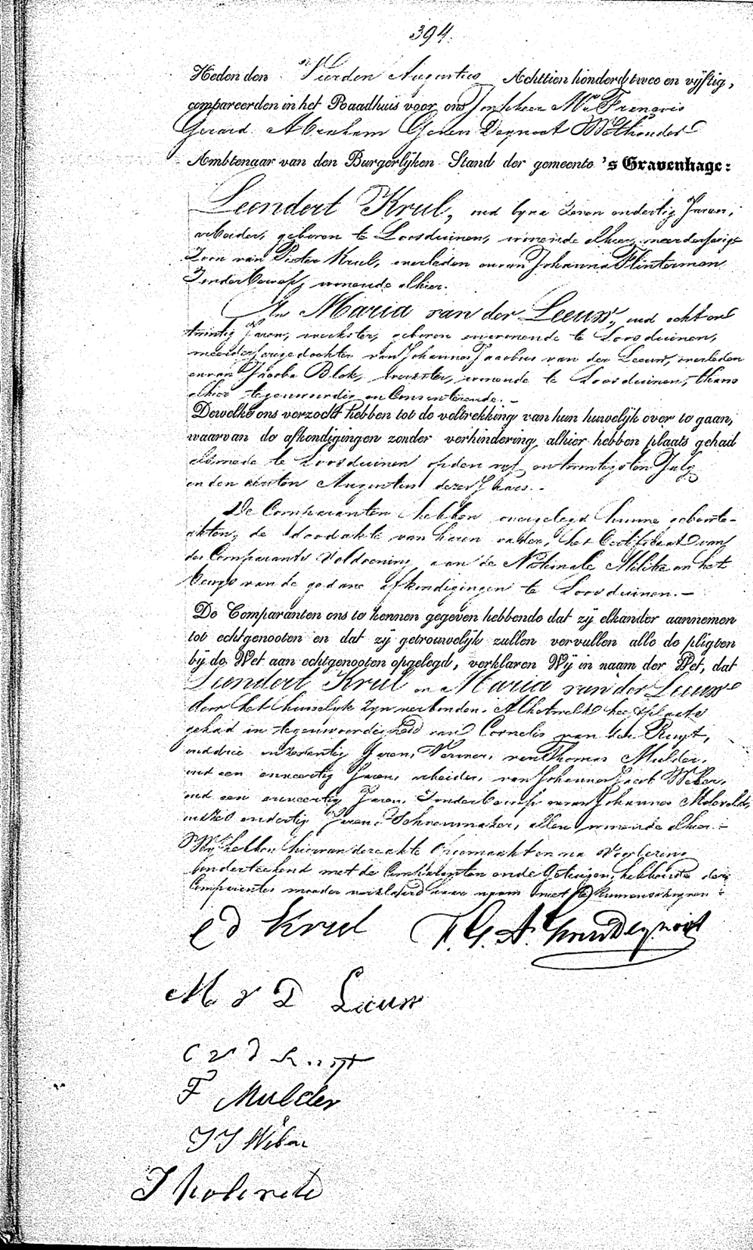 394.
Heden den Vierden Augustus Achttien honderd twee en vijftig,
compareerden in het Raadhuis voor ons Jonkheer Mr. François
Gerard Abraham Gevers Deynoot Wethouder
Ambtenaar van den Burgerlijken Stand der gemeente 's Gravenhage:
Leendert Krul, oud byna zeven en dertig Jaren,
arbeider, geboren te Loosduinen, wonende alhier, meerderjarige
Zoon van Pieter Krul, overleden en van Johanna Klinterman
Zonder beroep, wonende alhier.
En Maria van der Leeuw, oud acht en
twintig Jaren, werkster, geboren en wonende te Loosduinen,
meerderjarige dochter van Johannes Jacobus van der Leeuw, overleden
en van Jacoba Blok, werkster, wonende te Loosduinen, thans
alhier tegenwoordig en Consenterende.-
Dewelke ons verzocht hebben tot de voltrekking van hun huwelijk over te gaan,
waarvan de afkondigingen zonder verhindering alhier hebben plaats gehad
alsmede te Loosduinen op den vyf en twintigsten July
en den eersten Augustus dezes Jaars.-
De Comparanten hebben overgelegd hunne geboorte-
akten, de doodakte van haren vader, het Certificaat van
des Comparants Voldoening aan de Nationale Militie en het
bewys van de gedane afkondigingen te Loosduinen.-
De Comparanten ons te kennen gegeven hebbende dat zij elkander aannemen
tot echtgenooten en dat zij getrouwelijk zullen vervullen alle de pligten
bij de Wet aan echtgenooten opgelegd, verklaren Wij in naam der Wet, dat
Leendert Krul en Maria van der Leeuw
door het huwelyk zyn verbonden. Alhetwelk heeft plaats
gehad in tegenwoordigheid van Cornelis van der Kuyt,
oud drie en zeventig Jaren, van Thomas Mulder,
oud een en veertig Jaren, arbeider, van Johannes Jacob Weber,
oud een en veertig Jaren, Zonder beroep en van Johannes
oud zes en dertig Jaren, Schoenmaker, allen wonende alhier.-
Wy hebben hiervan deze akte opgemaakt en na voorlezing
onderteekend met de Comparanten en de Getuigen, hebbende der
Comparantes moeder verklaard haar naam niet te kunnen schryven.
Ld Krul F. G. A. Gevers Deynoot
M v D Leeuw
C v d
T Mulder
J J Weber